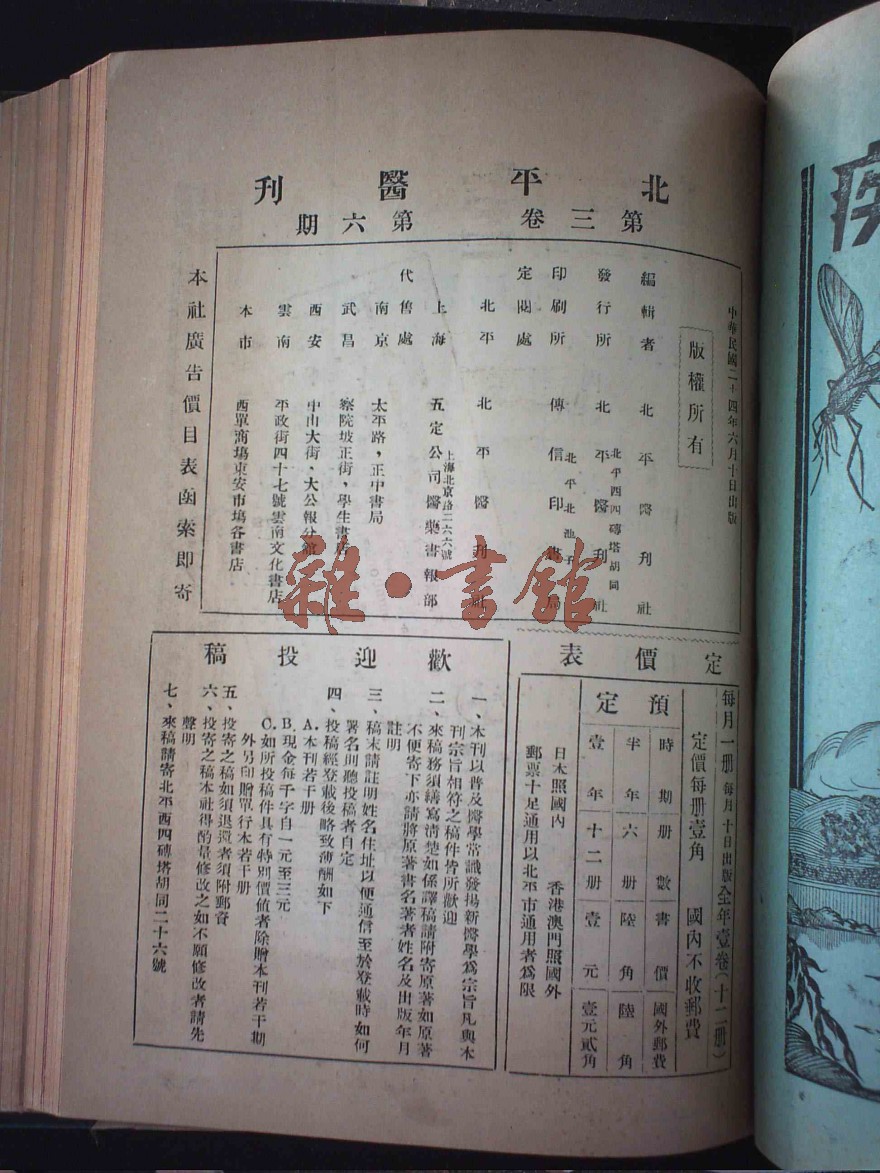 北平醫刊
第三卷 第六期
中華民國二十四年六月十日出版
版權所有
編輯者 北平醫刊社
發行所 北平醫刊社
北平西四磚塔胡同
印刷所 傳信印書局
北平北池子
定閱處
北平 北平醫刊社
上海 五定公司醫藥書報部
上海北京路二六六號
代售處
南京 太平路,正中書局
武昌 察院坡正街,學生書店
西安 中山大街,大公報分館
雲南 平政街四十七號雲南文化書店
本市 西單商塲東安市塲各書店
本社廣告價目表函索即寄
定價表
每月一册 每月十日出版 全年壹卷(十二册)
定價每册壹角 國內不收郵費
預定
時期 册數 書價 國外郵費
半年 六册 陸角 陸角
壹年 十二册 壹元 壹元貳角
日本照國內 香港澳門照國外
郵票十足通用以北平市通用者爲限
歡迎投稿
一、本刊以普及醫學常識發揚新醫學爲宗旨凡與本
刊宗旨相符之稿件皆所歡迎
二、來稿務須繕寫清楚如係譯稿請附寄原著如原著
不便寄下亦請將原著書名著者姓名及出版年月
註明
三、稿末請註明姓名住址以便通信至於登載時如何
署名則聽投稿者自定
四、投稿經登載後略致薄酬如下
A.本刊若干册
B.現金每千字自一元至三元
C.如所投稿件具有特別價値者除贈本刊若干期
外另印贈單行本若干册
五、投寄之稿如須退還者須附郵費
六、投寄之稿本社得酌量修改之如不願修改者請先
聲明
七、來稿請寄北平西四磚塔胡同二十六號
雜·書館
疾